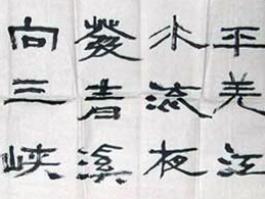 平羌江
水流夜
發清溪
向三峽